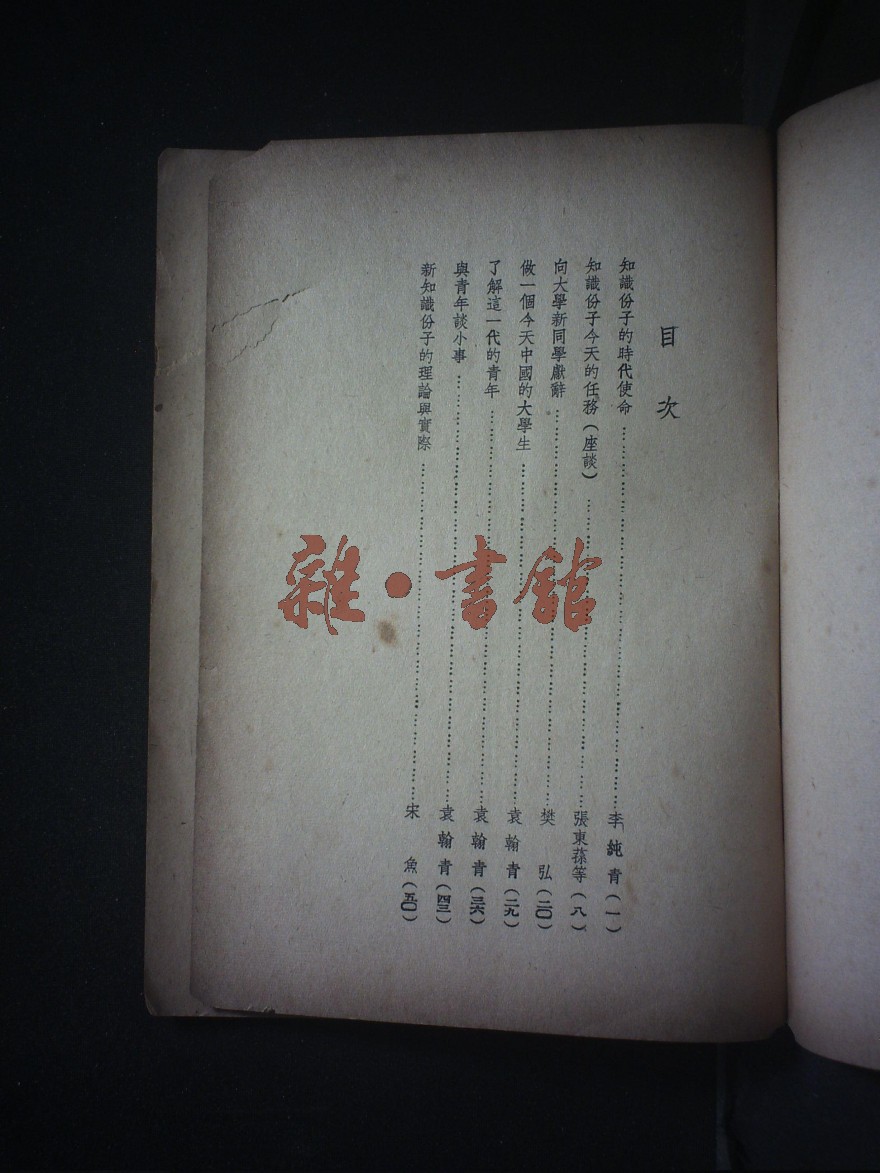 目次
知識份子的時代使命……李純青（一）
知識份子今天的任務（座談）……張東蓀等（八）
向大學新同學獻辭……樊弘（二〇）
做一個今天中國的大學生……袁翰青（二九）
了解這一代的青年……袁翰青（三六）
與青年談小事……袁翰青（四三）
新知識份子的理論與實際……宋魚（五〇）
雜·書館